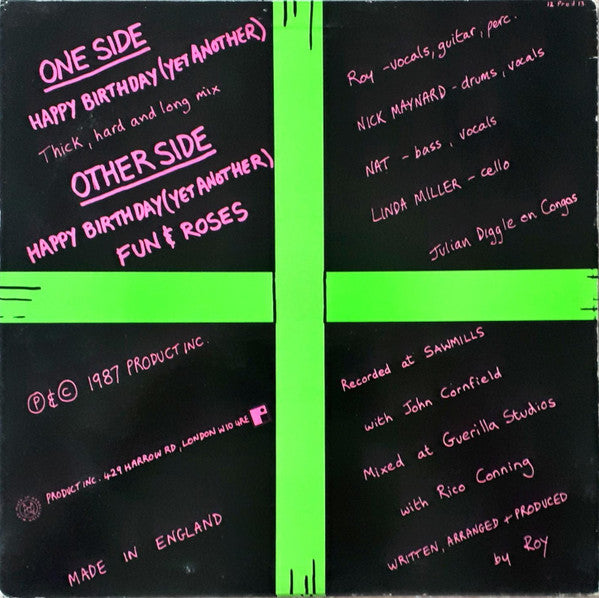 12 Prod 13
ONE SIDE
HAPPY BIRTHDAY (YET ANOTHER)
Thick, hard and long mix
OTHER SIDE
HAPPY BIRTHDAY (YET ANOTHER)
FUN & ROSES
Roy - vocals, guitar, perc.
NICK MAYNARD - drums, vocals
NAT - bass, vocals
LINDA MILLER - cello
Julian Diggle on Congas
Ⓟ & © 1987 PRODUCT INC.
PRODUCT INC. 429 HARROW RD, LONDON W10 4RE
MADE IN ENGLAND
Recorded at SAWMILLS
with John Cornfield
Mixed at Guerilla Studios
with Rico Conning
WRITTEN, ARRANGED + PRODUCED
by Roy